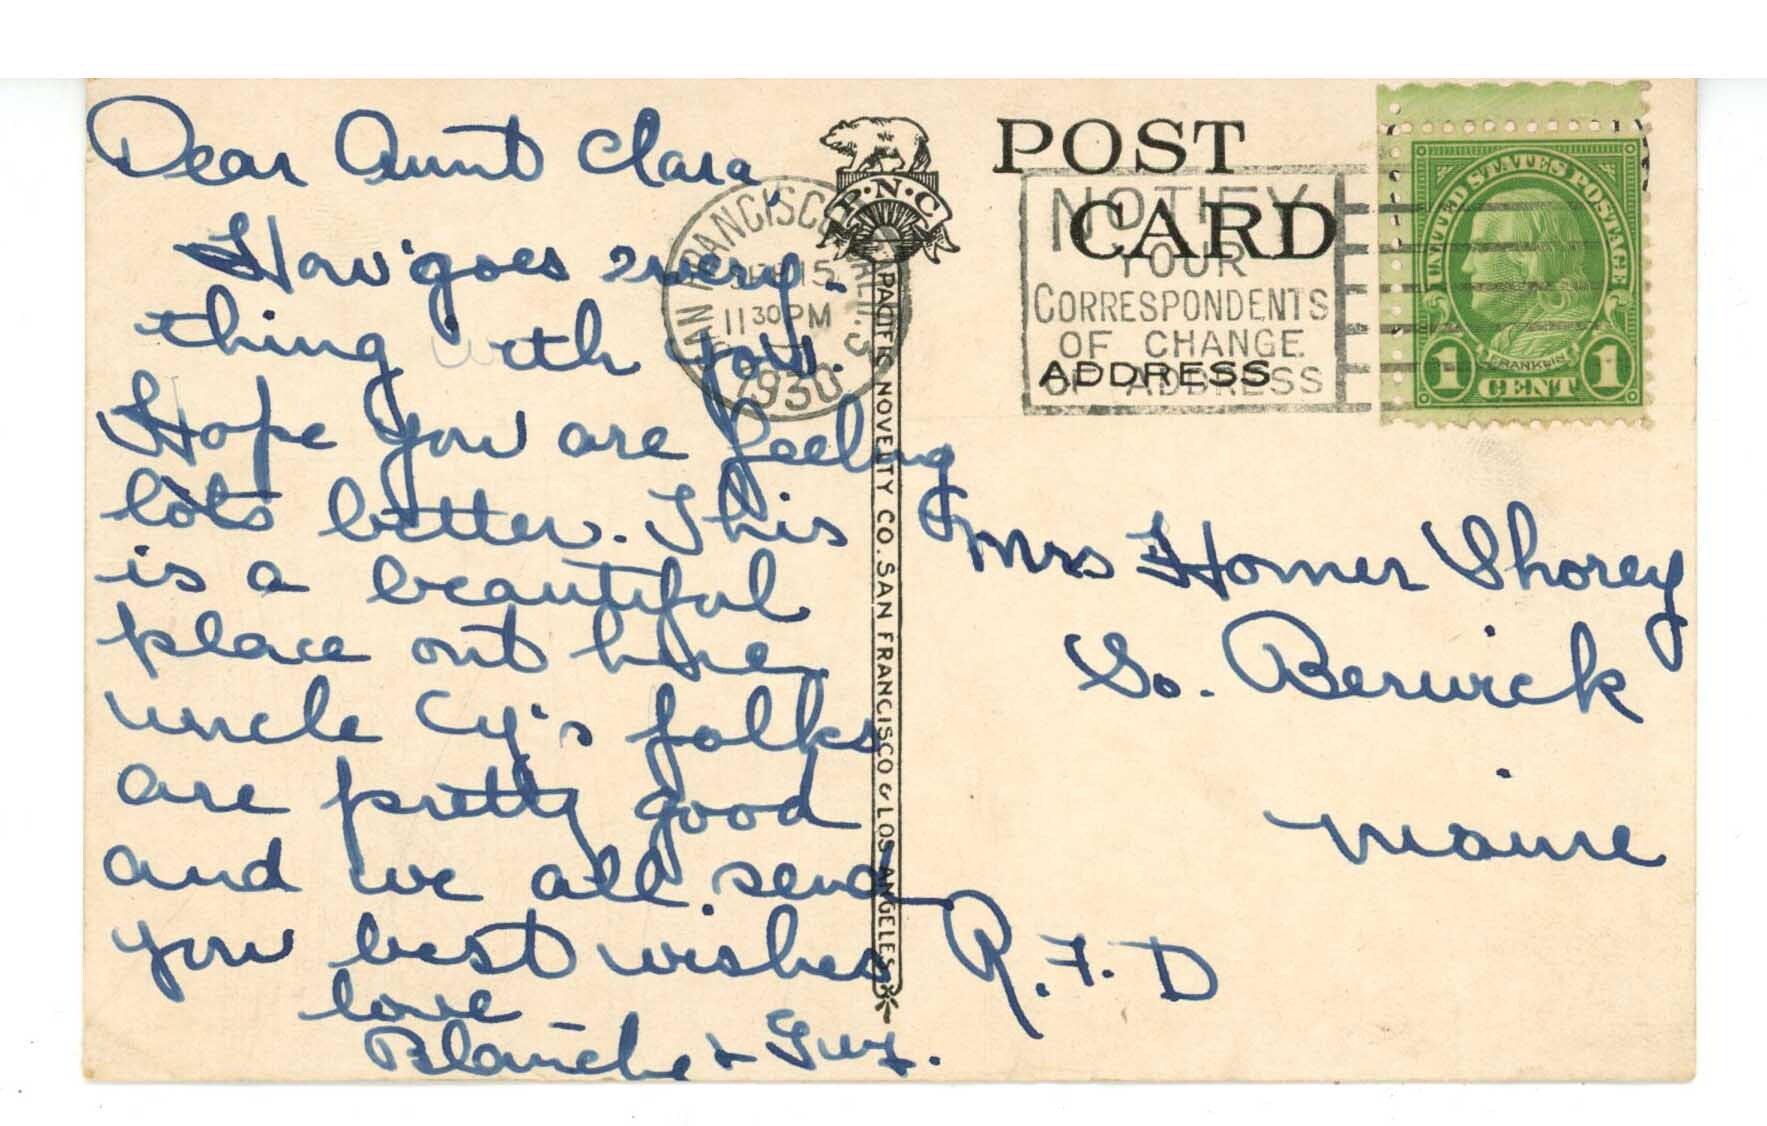 Dear Aunt Clara,
How goes every-
thing with you.
Hope you are feeling
lots better. This
is a beautiful
place out here,
uncle Cy's folks
are pretty good
and we all send
you best wishes
love
Blanche & Guy.
P.N.C.
PACIFIC NOVELTY CO. SAN FRANCISCO & LOS ANGELES
SAN FRANCISCO, CALIF. 3
SEP 15
11 30 PM
1930
POST
CARD
ADDRESS
NOTIFY
YOUR
CORRESPONDENTS
OF CHANGE
OF ADDRESS
UNITED STATES POSTAGE
FRANKLIN
1 CENT 1
Mrs Homer Shorey
So. Berwick
Maine
R.F.D